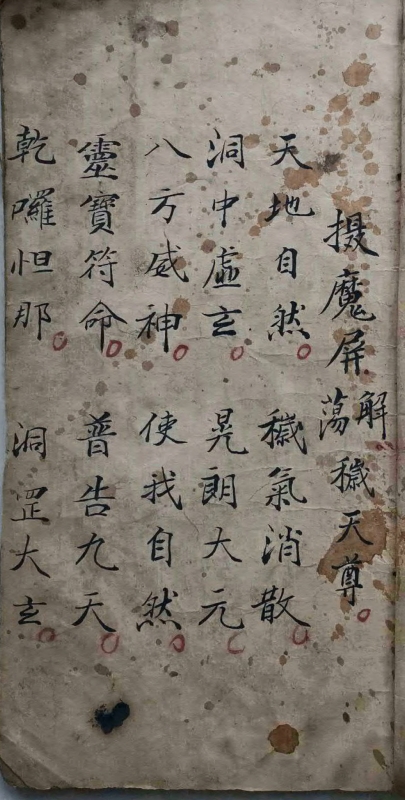 摄魔屏蕩解穢天尊
天地自然 穢氣消散
洞中虛玄 晃朗大元
八方威神 使我自然
靈寶符命 普告九天
乾囉怛那 洞罡大玄